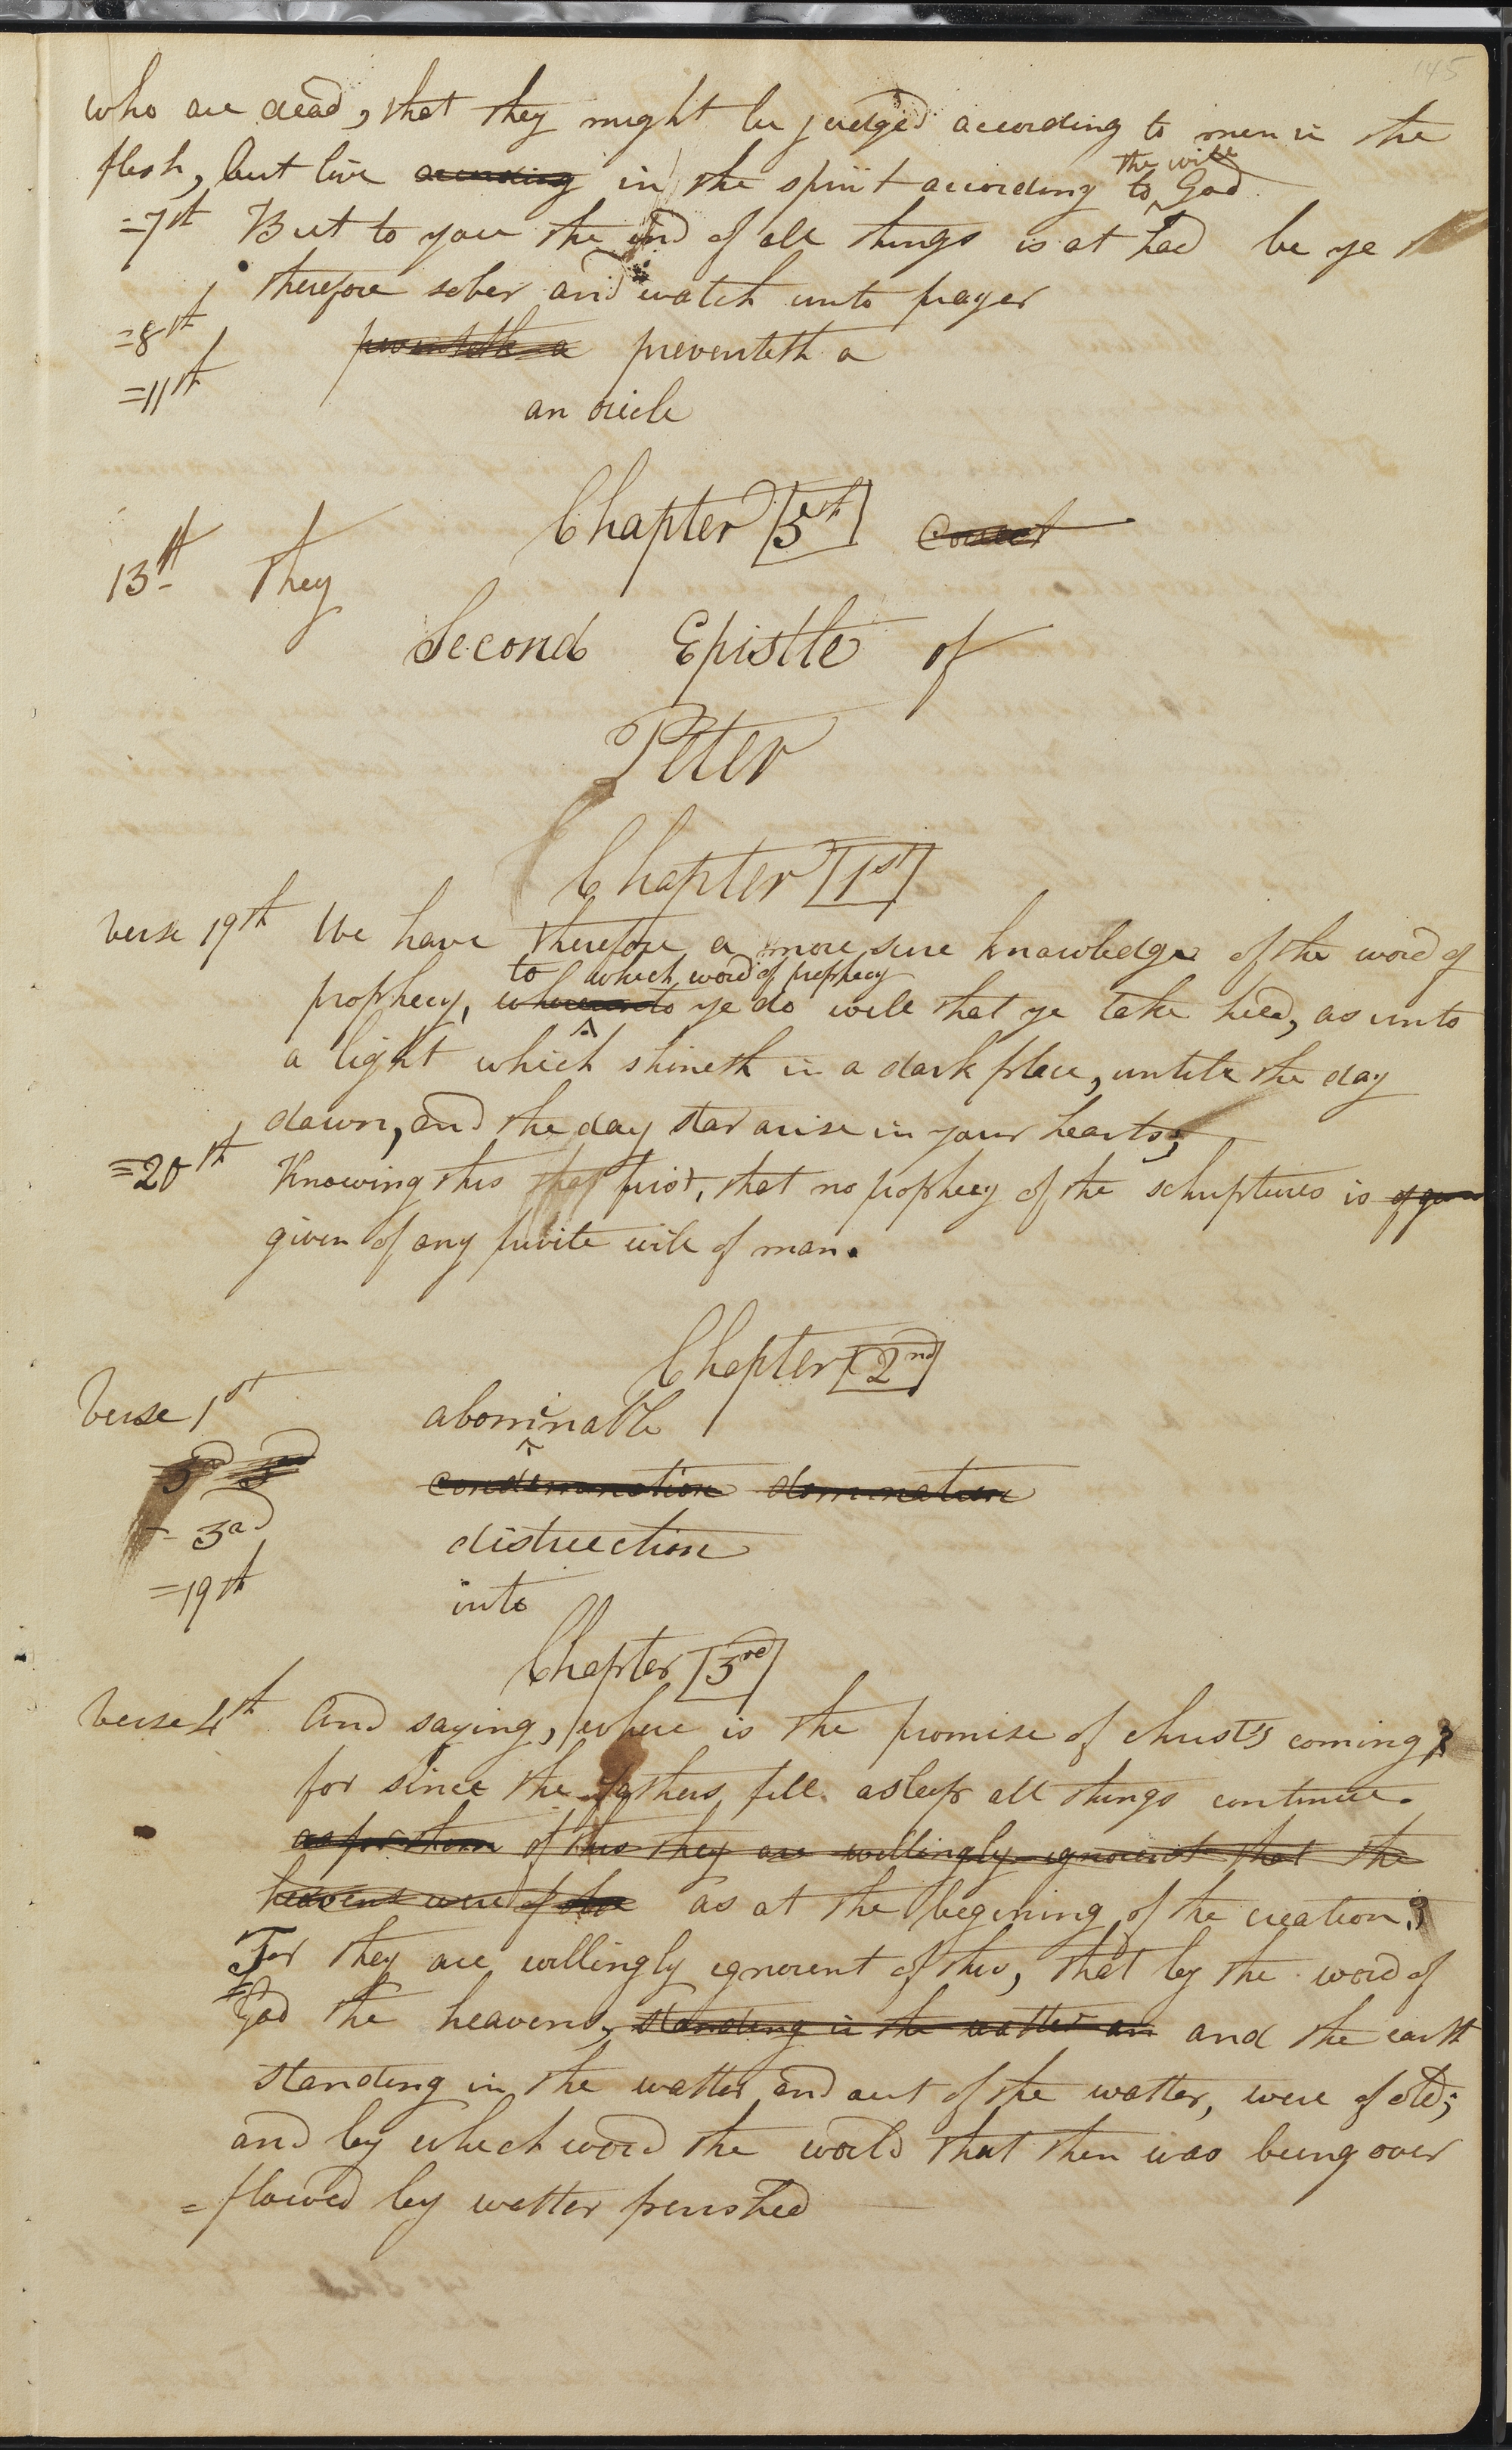 145
who are dead, that they might be judged according to men in the
flesh, but live according in the spirit according to the will God
=7th But to you the end of all things is at had be ye
therefore sober and watch unto prayer
=8th preventeth a preventeth a
=11th an oricle
Chapter 5th Correct
13th They
Second Epistle of
Peter
Chapter 1st
Verse 19th We have therefore a more sure knowledge of the word of
to which word of prophecy
prophecy, whereunto ye do will that ye take heed, as unto
a light which shineth in a dark place, untill the day
dawn, and the day star arise in your hearts;
=20th Knowing this first, that no prophecy of the schriptures is
given of any privite will of man.
Chapter 2nd
Verse 1st abominable
3rd 3 condemnation domnation
- 3rd distruction
=19th into
Chapter 3rd
Verse 4th And saying, where is the promise of christ's coming?
for since the fathers fell asleep all things continue.
as for them of this they are willingly ignorent that the
heavens were of old as at the begining of the creation?
For they are willingly ignorent of this, that by the word of
God the heavens, standing in the watter an and the earth
standing in the watter and out of the watter, were of old;
and by which word the world that then was being over
=flowed by watter perished